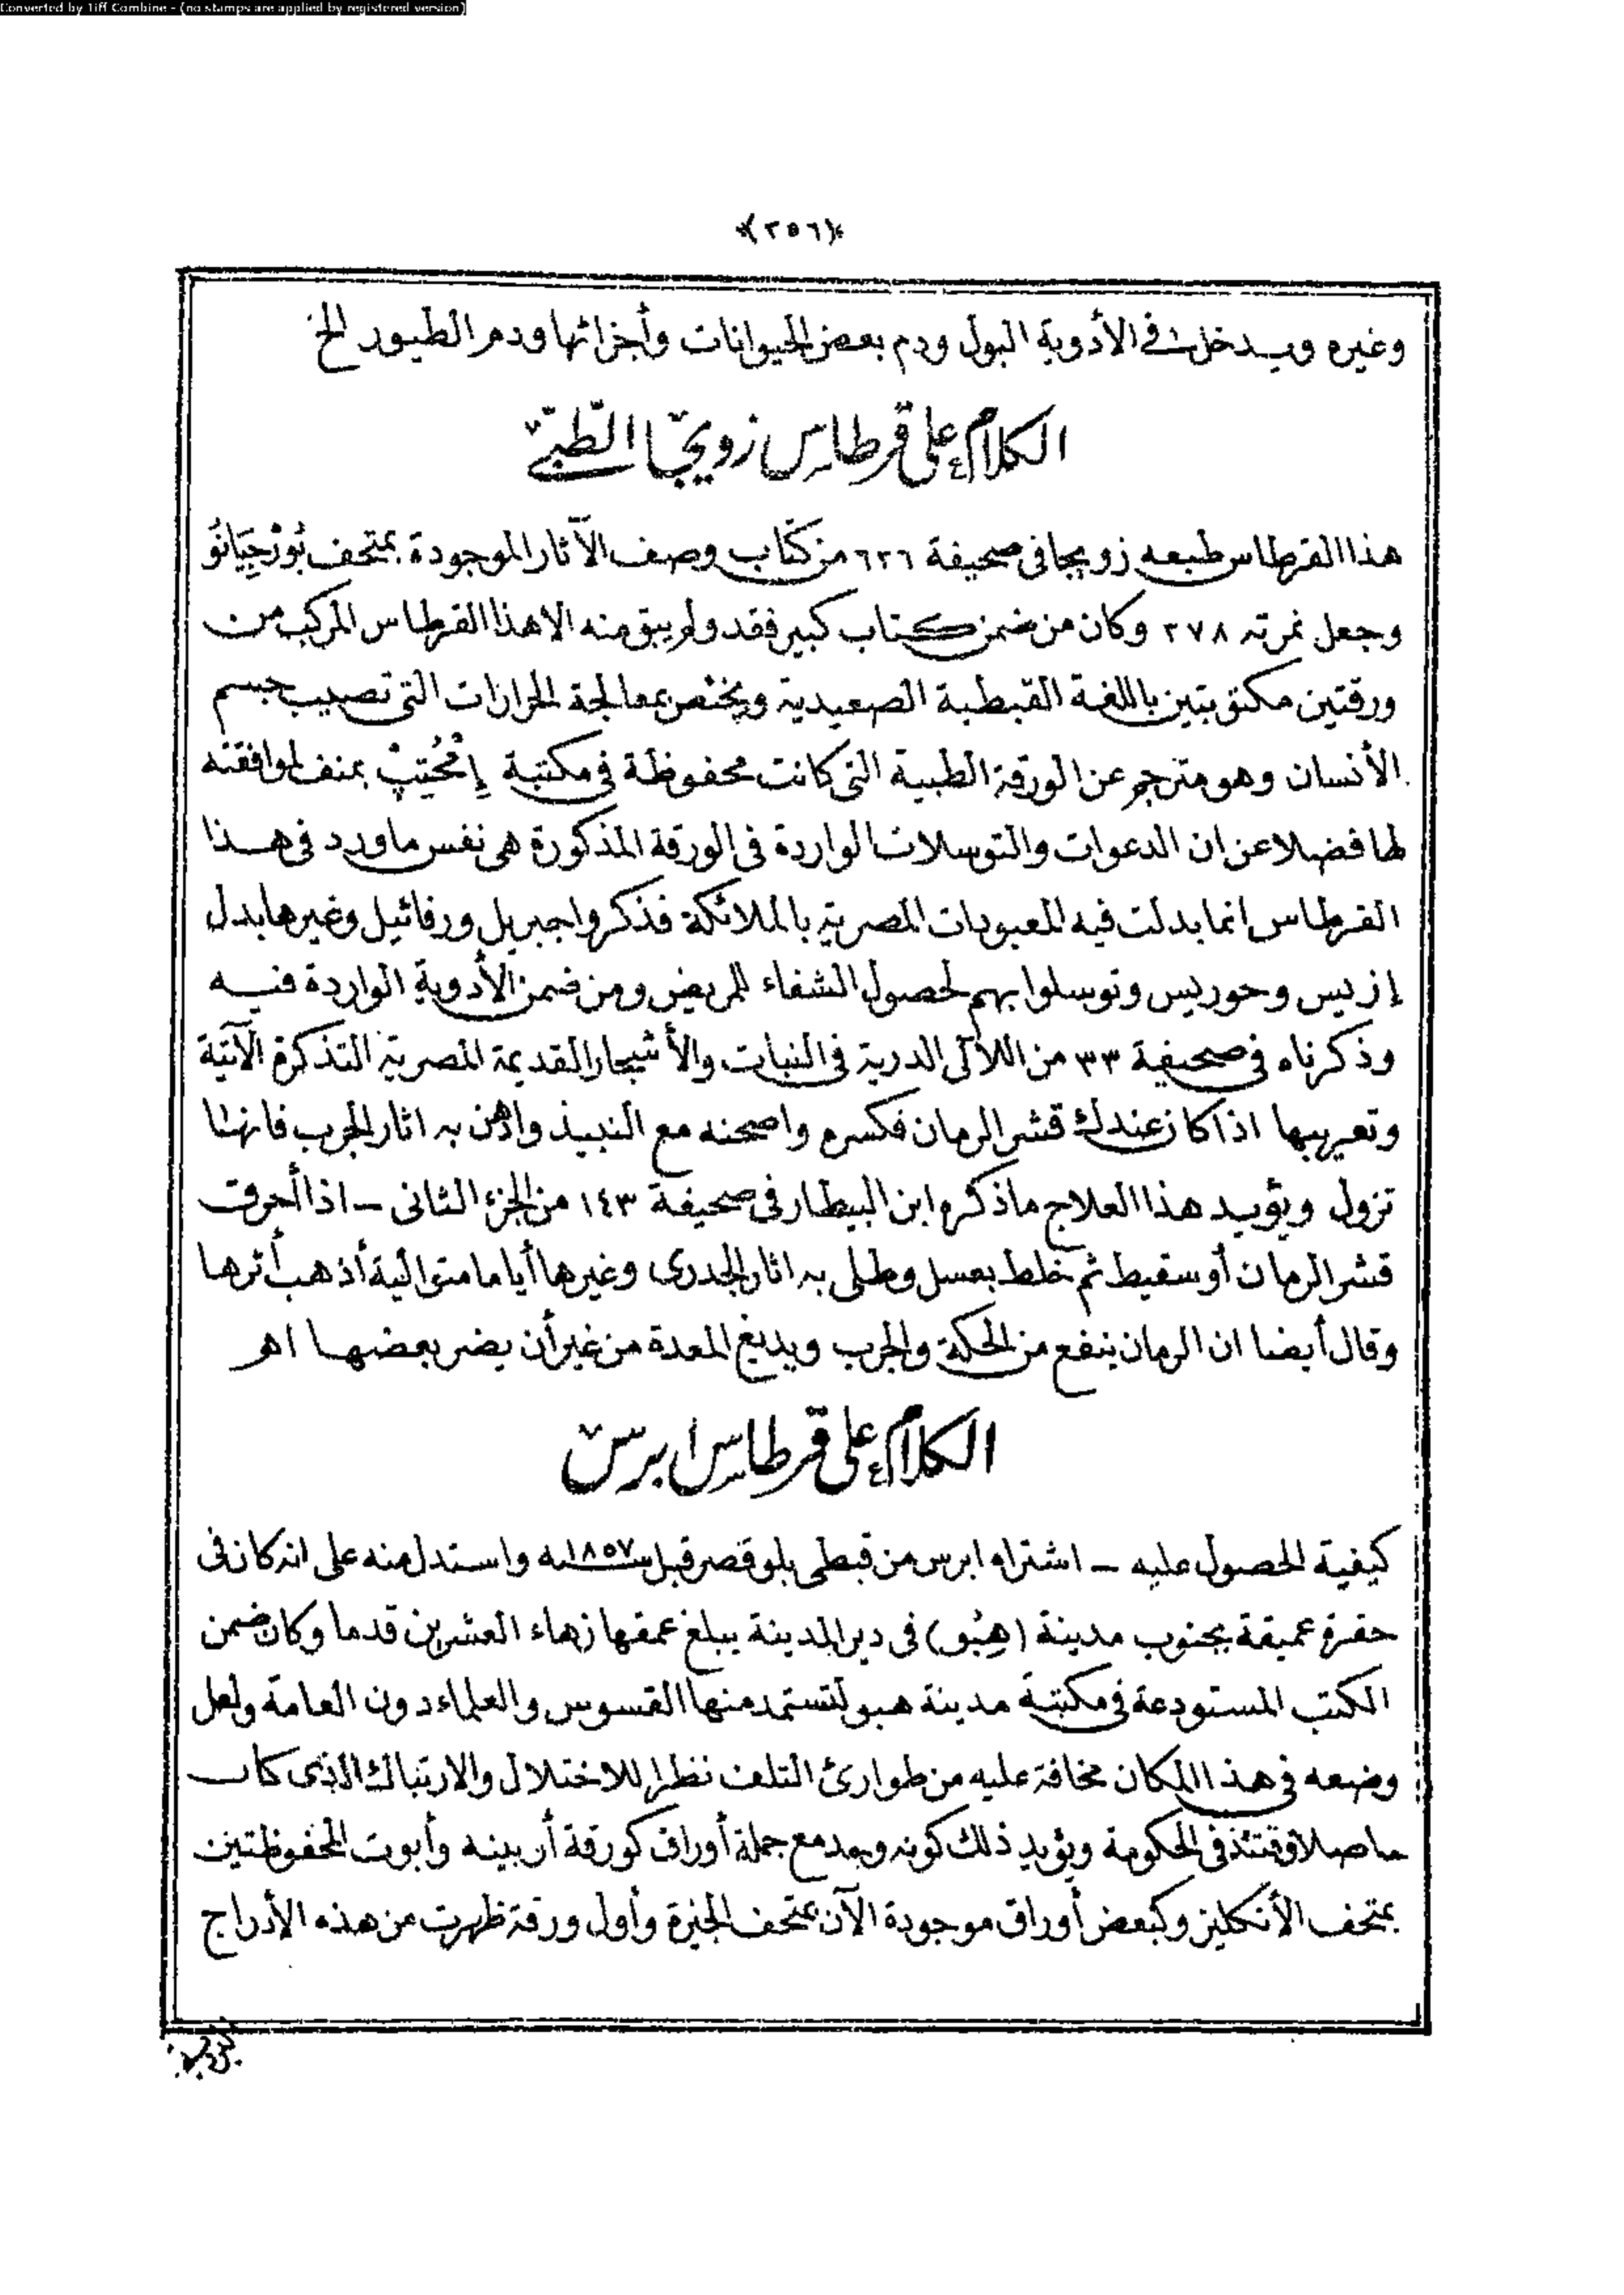 Converted by Tiff Combine - (no stamps are applied by registered version)
﴿٢٥٦﴾
وغيره ويدخل في الأدوية البول ودم بعض الحيوانات وأجزائها ودم الطيور الخ
الكلام على قرطاس زويجا الطبي
هذا القرطاس طبعه زويجا فى صحيفة ٦٢٦ من كتاب وصف الآثار الموجودة بمتحف بُورْجِيَانُو
وجعل نمرته ٢٧٨ وكان من ضمن كتاب كبير فقد ولم يبق منه الا هذا القرطاس المركب من
ورقتين مكتوبتين باللغة القبطية الصعيدية ويختص بمعالجة الحزازات التى تصيب جسم
الأنسان وهو مترجم عن الورقة الطبية التى كانت محفوظة فى مكتبة إمْحُتِپْ بمنف لموافقته
لها فضلا عن ان الدعوات والتوسلات الواردة فى الورقة المذكورة هى نفس ما ورد فى هذا
القرطاس انما بدلت فيه المعبودات المصرية بالملائكة فذكروا جبريل ورفائيل وغيرها بدل
إزيس وحوريس وتوسلوا بهم لحصول الشفاء للمريض ومن ضمن الأدوية الواردة فيه
وذكرناه فى صحيفة ٣٣ من اللآلى الدرية فى النبات والأشجار القديمة المصرية التذكرة الآتية
وتعريبها اذا كان عندك قشر الرمان فكسره واصحنه مع النبيذ وادهن به اثار الجرب فانها
تزول ويؤيد هذا العلاج ما ذكره ابن البيطار فى صحيفة ١٤٣ من الجزء الثانى – اذا أحرقت
قشر الرمان أو سقيط ثم خلط بعسل وطلى به اثار الجدرى وغيرها أياما متوالية أذهب أثرها
وقال أيضا ان الرمان ينفع من الحكة والجرب ويدبغ المعدة من غير أن يضر بعضها اهـ
الكلام على قرطاس ابرس
كيفية الحصول عليه – اشتراه ابرس من قبطى بلوقصر قبل سنة ١٨٥٧ واستدل منه على انه كان فى
حفرة عميقة بجنوب مدينة (هِبُو) فى دير المدينة يبلغ عمقها زهاء العشرين قدما وكان ضمن
الكتب المستودعة فى مكتبة مدينة هبو لتستمد منها القسوس والعلماء دون العامة ولعل
وضعه فى هذا المكان مخافة عليه من طوارئ التلف نظرا للاختلال والارتباك الذى كان
حاصلا وقتئذ فى الحكومة ويؤيد ذلك كونه وجد مع جملة أوراق كورقة أربينه وأبوت المحفوظتين
بمتحف الأنكليز وكبعض أوراق موجودة الآن بمتحف الجيزة وأول ورقة ظهرت من هذه الأدراج